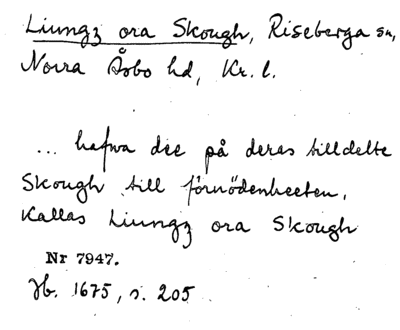 Liungz ora Skough, Riseberga sn,
Norra Åsbo hd, Kr. l.
... hafwa dee på deras tilldelte
Skough till förnödenheeten,
Kallas Liungz ora Skough
Nr 7947.
Jb. 1675, s. 205